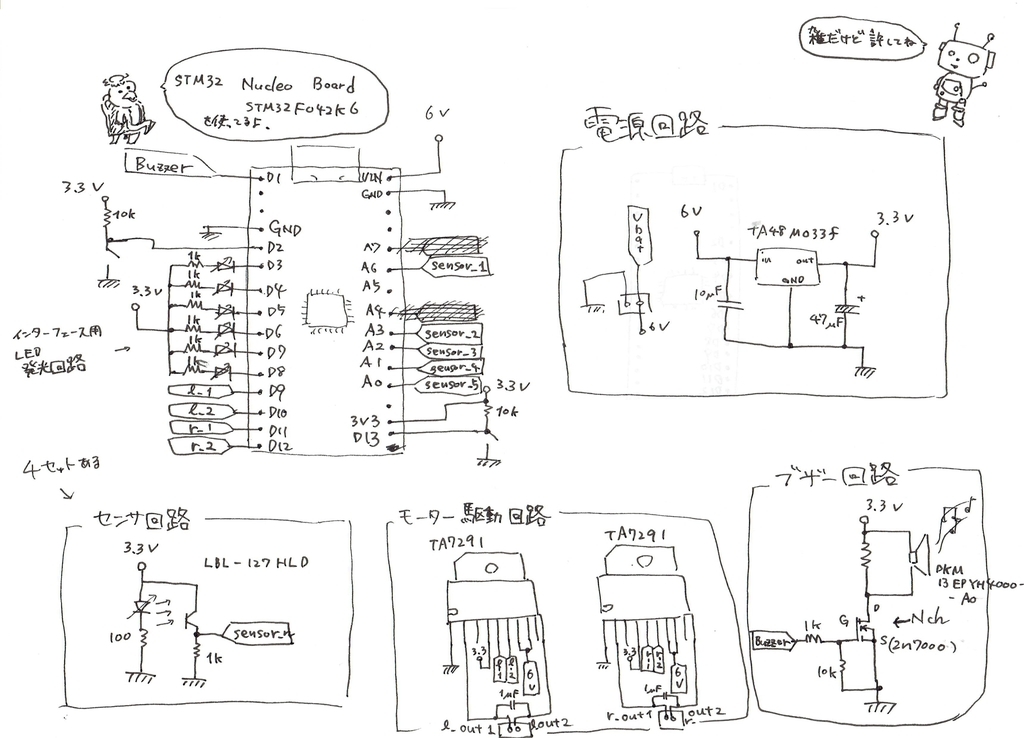 雑だけど許してね
STM32 Nucleo Board
STM32F042K6
を使ってるよ。
6V
Buzzer
D1
VIN
GND
3.3V
10k
GND
D2
A7
1k
D3
A6
sensor_1
1k
D4
A5
3.3V
1k
D5
A4
1k
D6
A3
sensor_2
インターフェース用
LED
発光回路
1k
D7
A2
sensor_3
1k
D8
A1
sensor_4
l_1
D9
A0
sensor_5
3.3V
l_2
D10
10k
r_1
D11
3V3
r_2
D12
D13
電源回路
Vbat
6V
6V
TA48M033f
in
out
GND
3.3V
10μF
+
47μF
4セットある
センサ回路
3.3V
LBL-127HLD
100
sensor_n
1k
モーター駆動回路
TA7291
TA7291
3.3
l_1
l_2
6V
1μF
l_out1
lout2
3.3
r_1
r_2
6V
1μF
r_out1
r_out2
ブザー回路
3.3V
DKM
13EPYH4000-
-A0
D
G
←Nch
S
(2n7000)
Buzzer
1k
10k